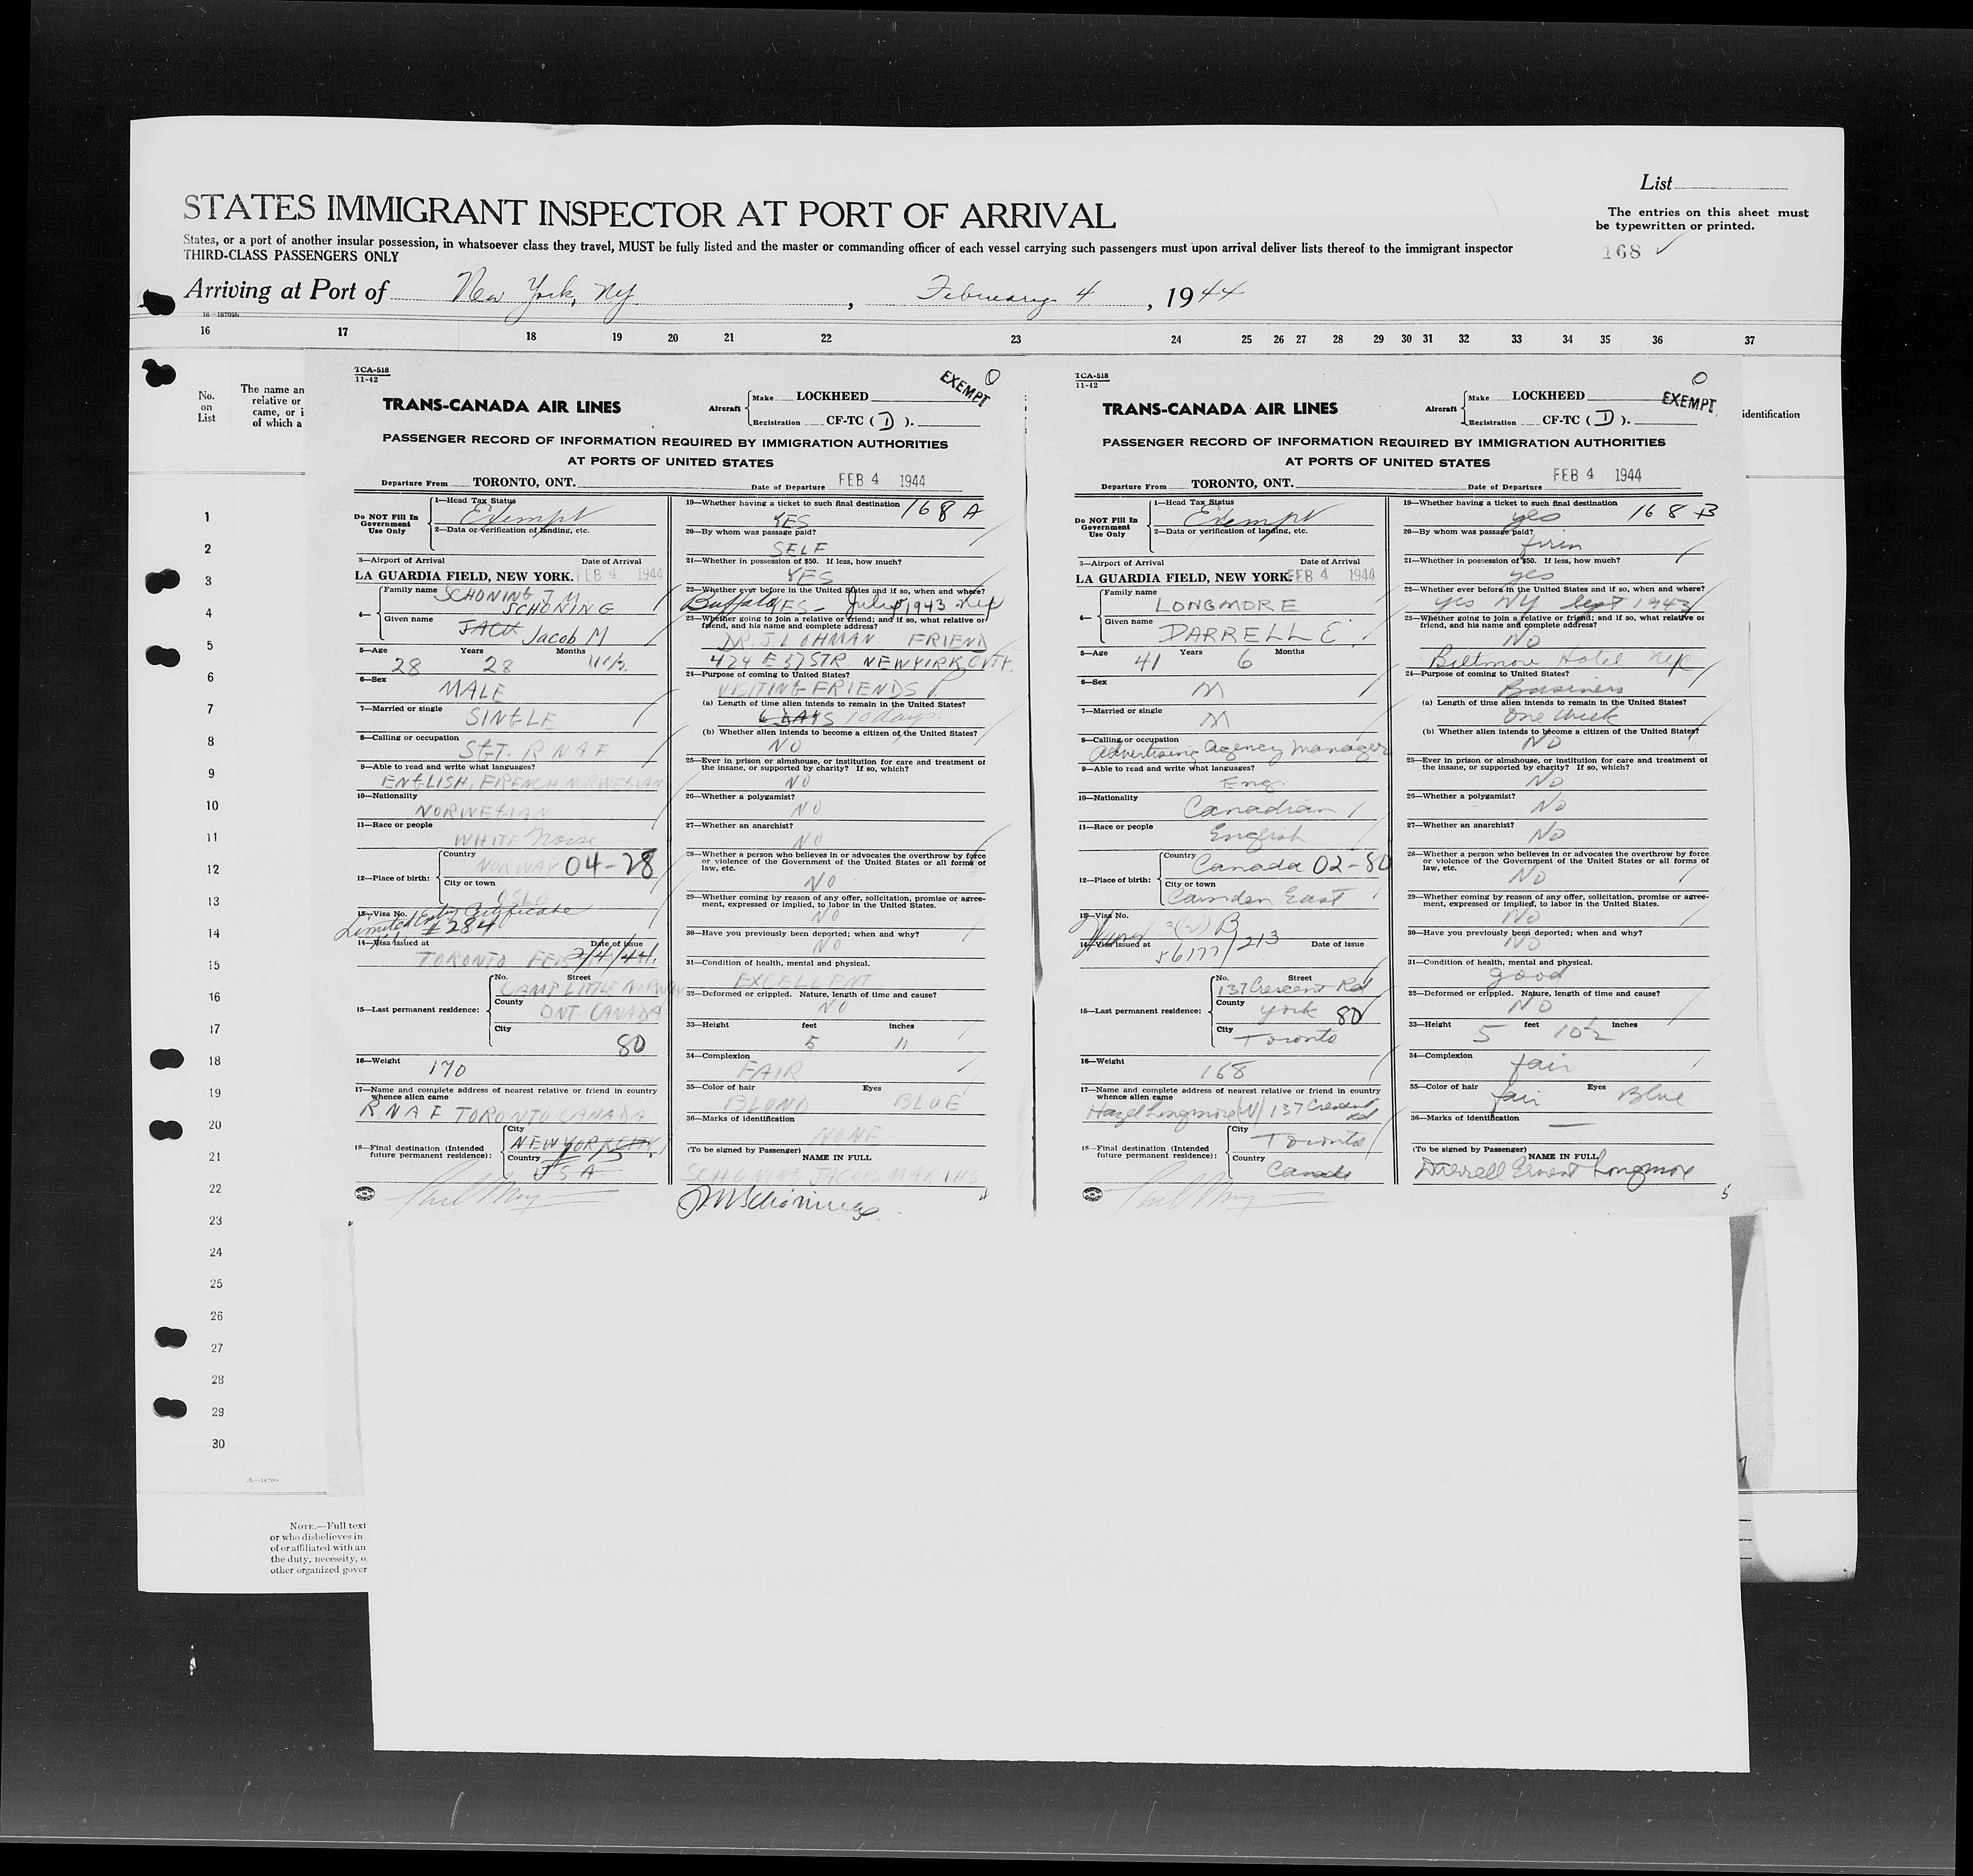 List
STATES IMMIGRANT INSPECTOR AT PORT OF ARRIVAL
The entries on this sheet must
be typewritten or printed.
States, or a port of another insular possession, in whatsoever class they travel, MUST be fully listed and the master or commanding officer of each vessel carrying such passengers must upon arrival deliver lists thereof to the immigrant inspector
THIRD-CLASS PASSENGERS ONLY
168 ✓
Arriving at Port of New York, NY. , February 4 , 1944
16 17 18 19 20 21 22 23 24 25 26 27 28 29 30 31 32 33 34 35 36 37
No.
on
List
The name an
relative or
came, or i
of which a
identification
1
2
3
4
5
6
7
8
9
10
11
12
13
14
15
16
17
18
19
20
21
22
23
24
25
26
27
28
29
30
TCA-518
11-42
EXEMPT
TRANS-CANADA AIR LINES
Aircraft Make LOCKHEED
Registration CF-TC ( D ).
PASSENGER RECORD OF INFORMATION REQUIRED BY IMMIGRATION AUTHORITIES
AT PORTS OF UNITED STATES
Departure From TORONTO, ONT. Date of Departure FEB 4 1944
Do NOT Fill In
Government
Use Only
1—Head Tax Status
Exempt
2—Data or verification of landing, etc.
3—Airport of Arrival Date of Arrival
LA GUARDIA FIELD, NEW YORK. FEB 4 1944
4— Family name SCHONING J M.
SCHONING
Given name
JACK Jacob M
5—Age Years Months
28 28 11 1/2
6—Sex
MALE
7—Married or single
SINGLE
8—Calling or occupation
SGT. RNAF
9—Able to read and write what languages?
ENGLISH, FRENCH, NORWEGIAN
10—Nationality
NORWEGIAN
11—Race or people
WHITE Norse
12—Place of birth: Country
NORWAY 04-28
City or town
OSLO
13—Visa No.
Limited Entry Certificate
#284
14—Visa issued at Date of issue
TORONTO FEB 2/4/44.
15—Last permanent residence: No. Street
CAMP LITTLE NORWAY
County
ONT. CANADA
City
80
16—Weight
170
17—Name and complete address of nearest relative or friend in country
whence alien came
RNAF TORONTO CANADA
18—Final destination (Intended
future permanent residence): City
NEW YORK CITY
Country
USA
19—Whether having a ticket to such final destination 168 A
YES
20—By whom was passage paid?
SELF
21—Whether in possession of $50. If less, how much?
YES
22—Whether ever before in the United States and if so, when and where?
Buffalo YES - July 1943
23—Whether going to join a relative or friend; and if so, what relative or
friend, and his name and complete address?
DR. J LOHMAN FRIEND
424 E 57 STR. NEWYIRK CITY.
24—Purpose of coming to United States?
VISITING FRIENDS
(a) Length of time alien intends to remain in the United States?
6 DAYS 10 days.
(b) Whether alien intends to become a citizen of the United States?
NO
25—Ever in prison or almshouse, or institution for care and treatment of
the insane, or supported by charity? If so, which?
NO
26—Whether a polygamist?
NO
27—Whether an anarchist?
NO
28—Whether a person who believes in or advocates the overthrow by force
or violence of the Government of the United States or all forms of
law, etc.
NO
29—Whether coming by reason of any offer, solicitation, promise or agree-
ment, expressed or implied, to labor in the United States.
NO
30—Have you previously been deported; when and why?
NO
31—Condition of health, mental and physical.
EXCELLENT
32—Deformed or crippled. Nature, length of time and cause?
NO
33—Height feet inches
5 11
34—Complexion
FAIR
35—Color of hair Eyes
BLOND BLUE
36—Marks of identification
NONE
(To be signed by Passenger)
NAME IN FULL
SCHONING JACOB MARIUS
JMSchöning
TCA-518
11-42
EXEMPT
TRANS-CANADA AIR LINES
Aircraft Make LOCKHEED
Registration CF-TC ( D ).
PASSENGER RECORD OF INFORMATION REQUIRED BY IMMIGRATION AUTHORITIES
AT PORTS OF UNITED STATES
Departure From TORONTO, ONT. Date of Departure FEB 4 1944
Do NOT Fill In
Government
Use Only
1—Head Tax Status
Exempt
2—Data or verification of landing, etc.
3—Airport of Arrival Date of Arrival
LA GUARDIA FIELD, NEW YORK. FEB 4 1944
4— Family name
LONGMORE
Given name
DARRELL E.
5—Age Years Months
41 6
6—Sex
M
7—Married or single
M
8—Calling or occupation
Advertising Agency Manager
9—Able to read and write what languages?
Eng.
10—Nationality
Canadian
11—Race or people
English
12—Place of birth: Country
Canada 02-80
City or town
Camden East
13—Visa No.
3(2) B
14—Visa issued at Date of issue
56177/213
15—Last permanent residence: No. Street
137 Crescent Rd
County
York 80
City
Toronto
16—Weight
168
17—Name and complete address of nearest relative or friend in country
whence alien came
Hazel Longmore (W) 137 Crescent
Rd
18—Final destination (Intended
future permanent residence): City
Toronto
Country
Canada
19—Whether having a ticket to such final destination 168 B
yes
20—By whom was passage paid?
firm
21—Whether in possession of $50. If less, how much?
yes
22—Whether ever before in the United States and if so, when and where?
yes NY Sept 1943
23—Whether going to join a relative or friend; and if so, what relative or
friend, and his name and complete address?
NO
Biltmore Hotel NYC
24—Purpose of coming to United States?
Business
(a) Length of time alien intends to remain in the United States?
One Week
(b) Whether alien intends to become a citizen of the United States?
NO
25—Ever in prison or almshouse, or institution for care and treatment of
the insane, or supported by charity? If so, which?
NO
26—Whether a polygamist?
NO
27—Whether an anarchist?
NO
28—Whether a person who believes in or advocates the overthrow by force
or violence of the Government of the United States or all forms of
law, etc.
NO
29—Whether coming by reason of any offer, solicitation, promise or agree-
ment, expressed or implied, to labor in the United States.
NO
30—Have you previously been deported; when and why?
NO
31—Condition of health, mental and physical.
good
32—Deformed or crippled. Nature, length of time and cause?
NO
33—Height feet inches
5 10½
34—Complexion
fair
35—Color of hair Eyes
fair Blue
36—Marks of identification
—
(To be signed by Passenger)
NAME IN FULL
Darrell Ernest Longmore
5
NOTE.—Full text
or who disbelieves in
of or affiliated with an
the duty, necessity, o
other organized gover